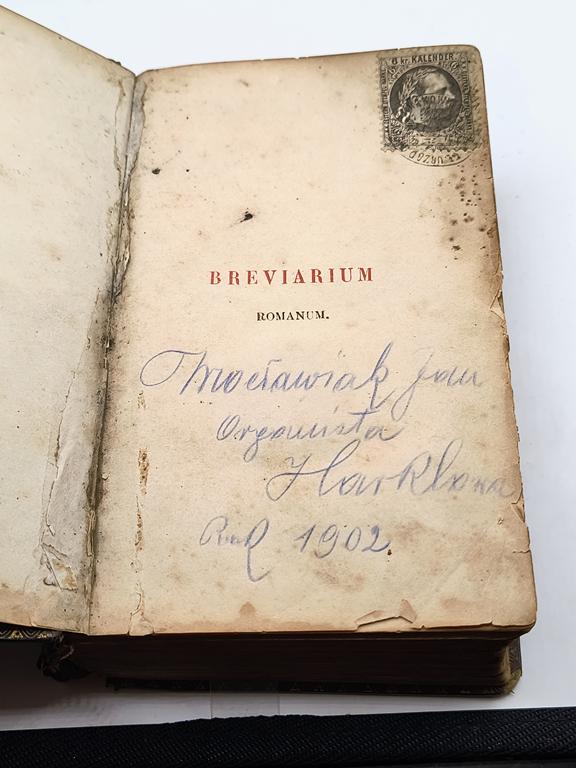 6 kr. KALENDER
BREVIARIUM
ROMANUM.
Mrocławiak Jan
Organista
Harklowa
Rok 1902